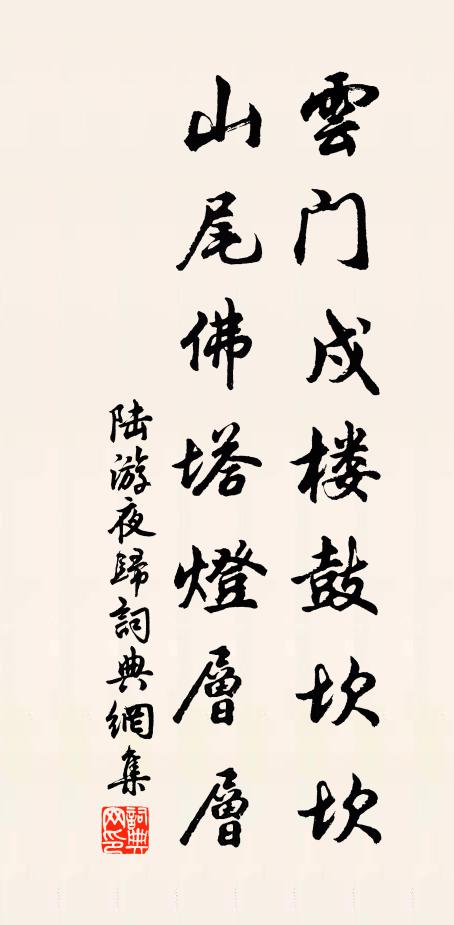 雲门戍楼鼓坎坎
山尾佛塔燈層層
陆游夜歸詞典網集
詞典网印